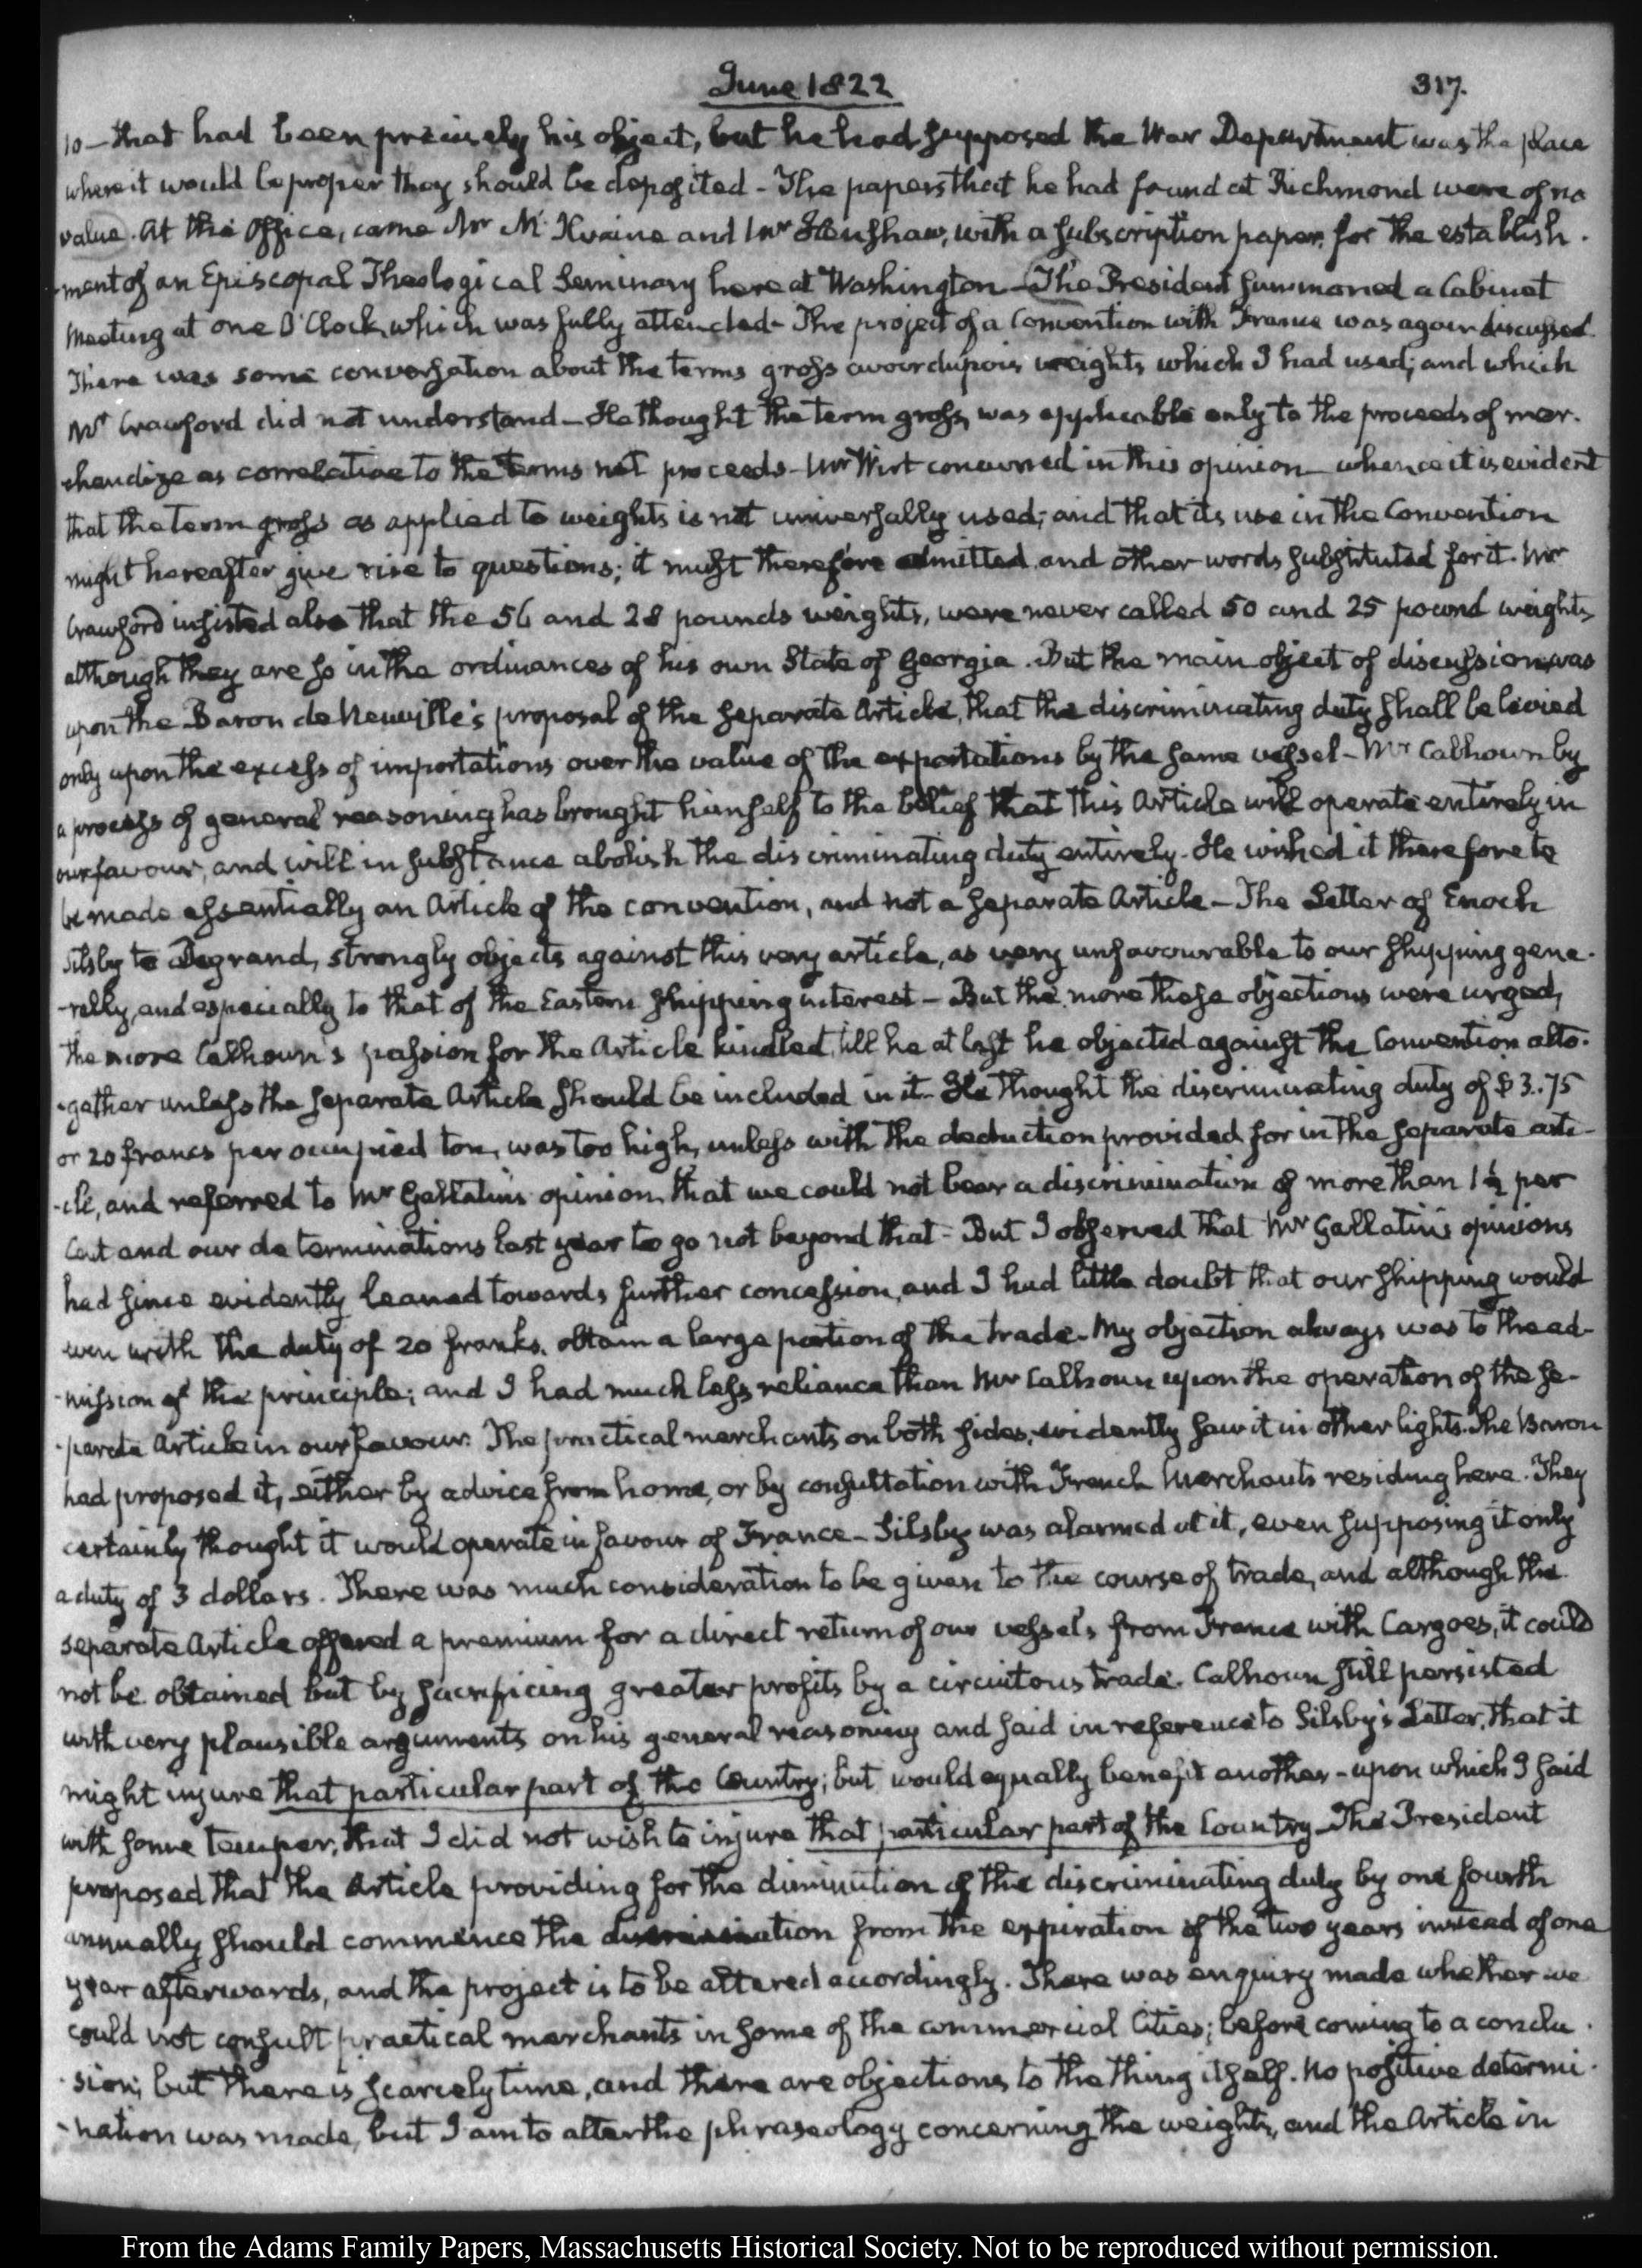 June 1822
317.
10 — that had been precisely his object, but he had supposed the War Department was the place
where it would be proper they should be deposited — The papers that he had found at Richmond were of no
value. At the Office, came Mr McIlvaine and Mr Henshaw, with a subscription paper for the establish-
-ment of an Episcopal Theological Seminary here at Washington — The President summoned a Cabinet
Meeting at one O'Clock, which was fully attended — The project of a Convention with France was again discussed.
There was some conversation about the terms gross avoirdupois weights which I had used; and which
Mr Crawford did not understand — He thought the term gross, was applicable only to the proceeds of mer-
chandize as correlative to the terms net proceeds — Mr Wirt concurred in this opinion — whence it is evident
that the term gross as applied to weights is not universally used; and that its use in the Convention
might hereafter give rise to questions; it must therefore omitted, and other words substituted for it. Mr
Crawford insisted also that the 56 and 28 pounds weights, were never called 50 and 25 pound weights,
although they are so in the ordinances of his own State of Georgia. But the main object of discussion was
upon the Baron de Neuville's proposal of the separate Article, that the discriminating duty shall be levied
only upon the excess of importations over the value of the exportations by the same vessel — Mr Calhoun by
a process of general reasoning has brought himself to the belief that this Article will operate entirely in
our favour, and will in substance abolish the discriminating duty entirely. He wished it therefore to
be made essentially an Article of the convention, and not a separate Article — The Letter of Enoch
Silsby to Degrand, strongly objects against this very article, as very unfavourable to our shipping gene-
-rally, and especially to that of the Eastern shipping interest — But the more these objections were urged,
the more Calhoun's passion for the Article kindled, till he at last he objected against the Convention alto-
-gether unless the separate Article should be included in it. He thought the discriminating duty of $3..75
or 20 francs per occupied ton, was too high, unless with the deduction provided for in the separate arti-
-cle, and referred to Mr Gallatin's opinion, that we could not bear a discrimination of more than 1½ per
Cent and our determinations last year to go not beyond that — But I observed that Mr Gallatin's opinions
had since evidently leaned towards further concession, and I had little doubt that our shipping would
even with the duty of 20 franks, obtain a large portion of the trade. My objection always was to the ad-
-mission of the principle; and I had much less reliance than Mr Calhoun upon the operation of the se-
-parate Article in our favour. The practical merchants on both sides, evidently saw it in other lights. The Baron
had proposed it, either by advice from home, or by consultation with French Merchants residing here. They
certainly thought it would operate in favour of France — Silsby was alarmed at it, even supposing it only
a duty of 3 dollars. There was much consideration to be given to the course of trade, and although the
separate Article offered a premium for a direct return of our vessels from France with Cargoes, it could
not be obtained but by sacrificing greater profits by a circuitous trade. Calhoun still persisted
with very plausible arguments on his general reasoning and said in reference to Silsby's Letter, that it
might injure that particular part of the Country; but would equally benefit another — upon which I said
with some temper, that I did not wish to injure that particular part of the Country — The President
proposed that the Article providing for the diminution of the discriminating duty by one fourth
annually should commence the diminution from the expiration of the two years instead of one
year afterwards, and the project is to be altered accordingly. There was enquiry made whether we
could not consult practical merchants in some of the commercial Cities; before coming to a conclu-
-sion; but there is scarcely time, and there are objections to the thing itself. No positive determi-
-nation was made, but I am to alter the phraseology concerning the weights, and the Article in
From the Adams Family Papers, Massachusetts Historical Society. Not to be reproduced without permission.